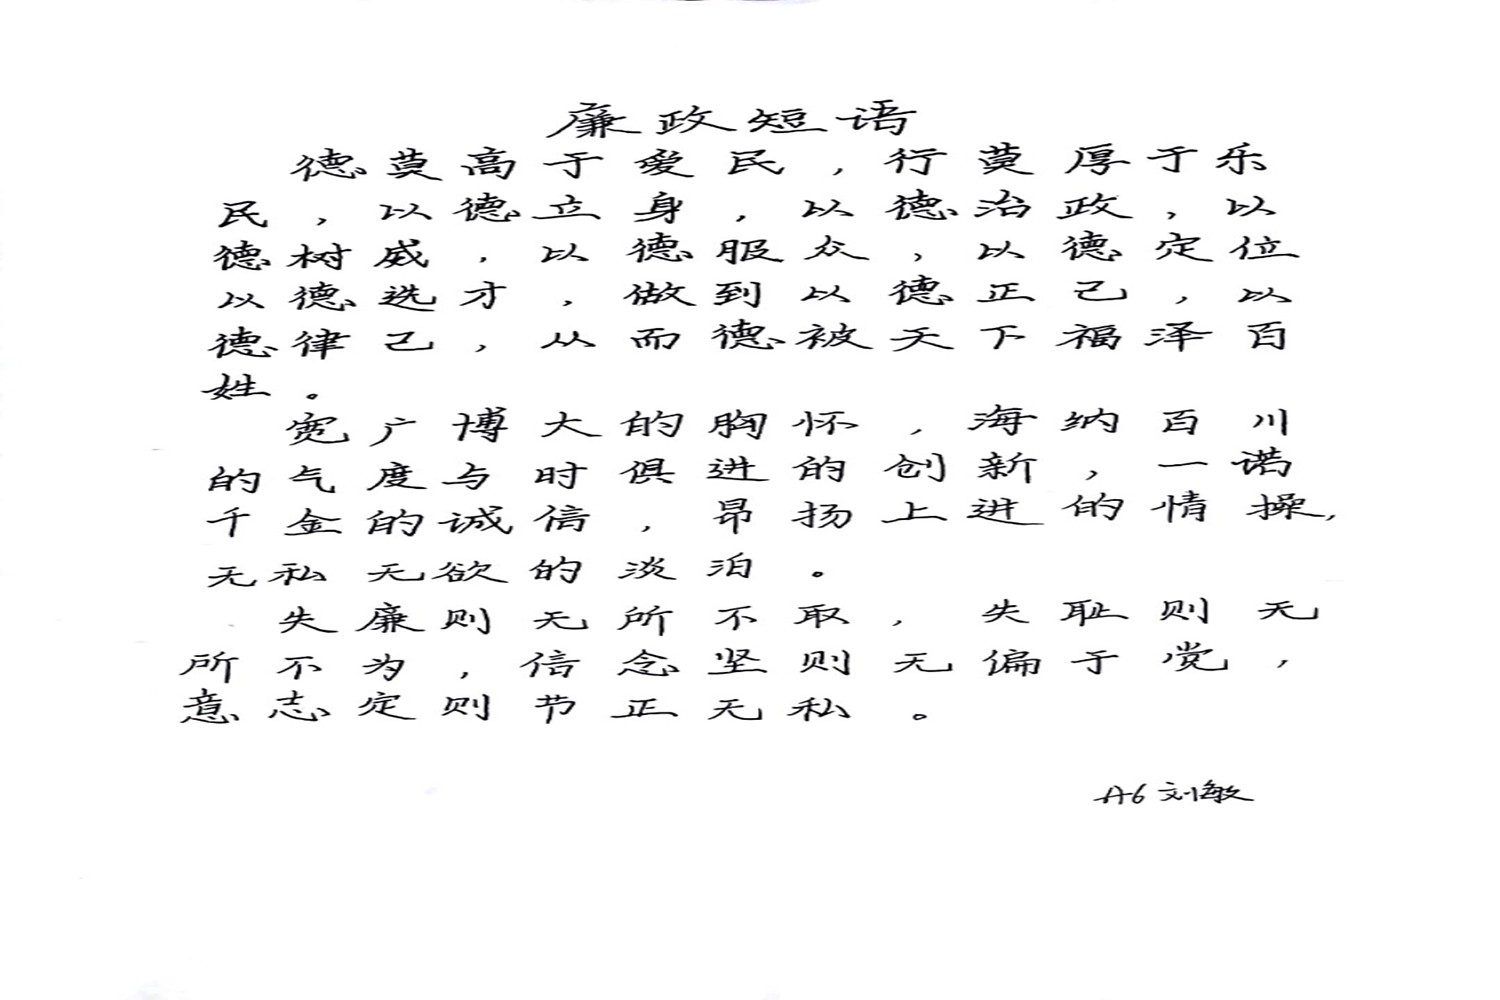 廉政短语
德莫高于爱民，行莫厚于乐
民，以德立身，以德治政，以
德树威，以德服众，以德定位
以德选才，做到以德正己，以
德律己，从而德被天下福泽百
姓。
宽广博大的胸怀，海纳百川
的气度与时俱进的创新，一诺
千金的诚信，昂扬上进的情操，
无私无欲的淡泊。
失廉则无所不取，失耻则无
所不为，信念坚则无偏于党，
意志定则节正无私。
A6 刘敏